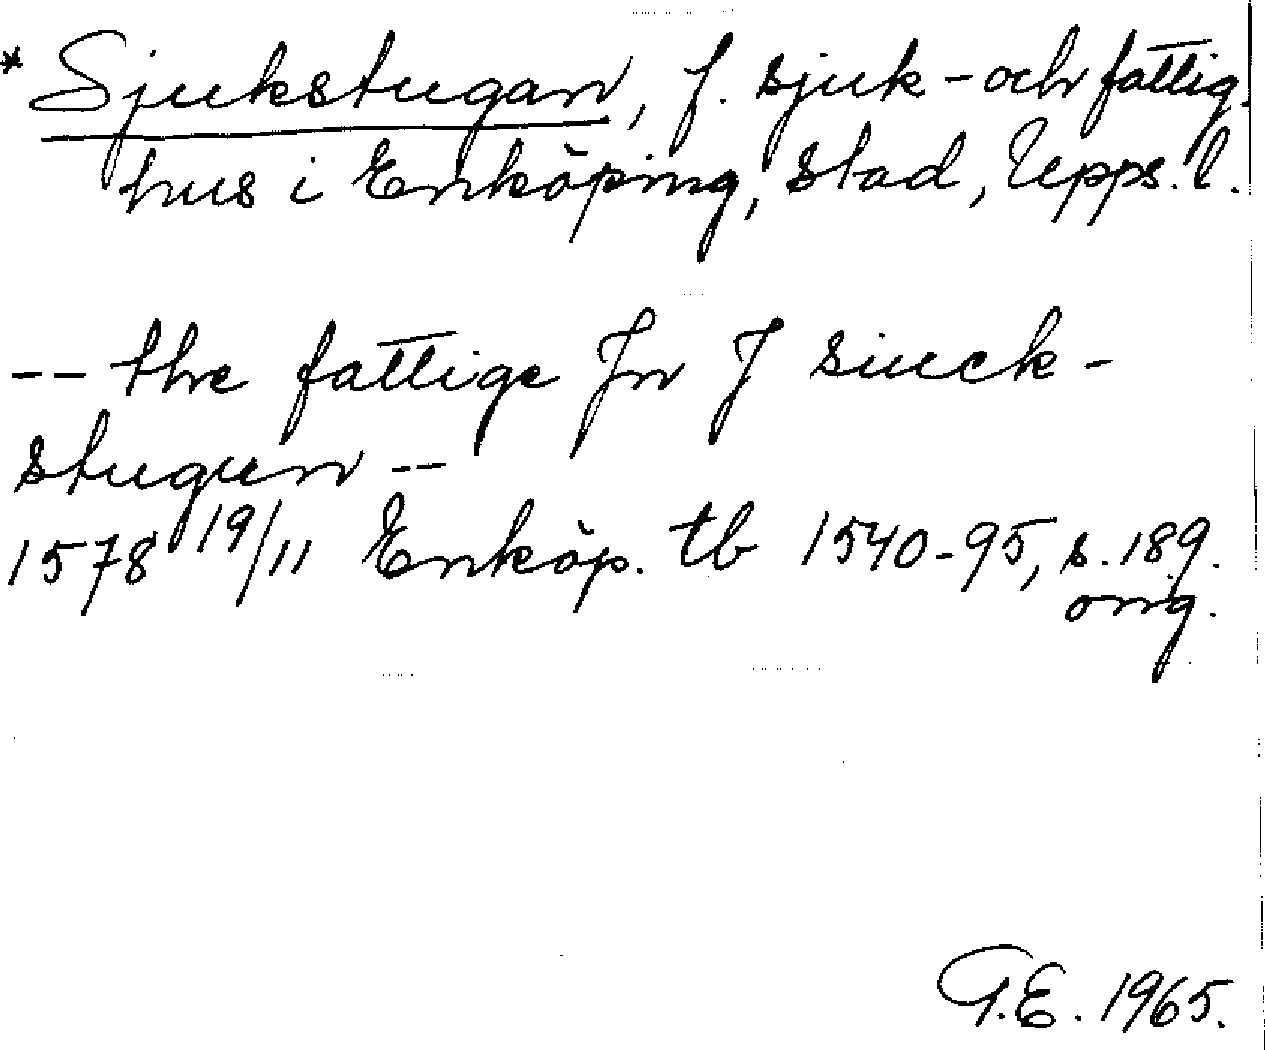 * Sjukstugan, f. sjuk- och fattig-
hus i Enköping, stad, Upps. l.
-- the fattige Jn J siuck-
stugun --
1578 19/11 Enköp. tb 1540-95, s. 189.
orig.
G.E. 1965.